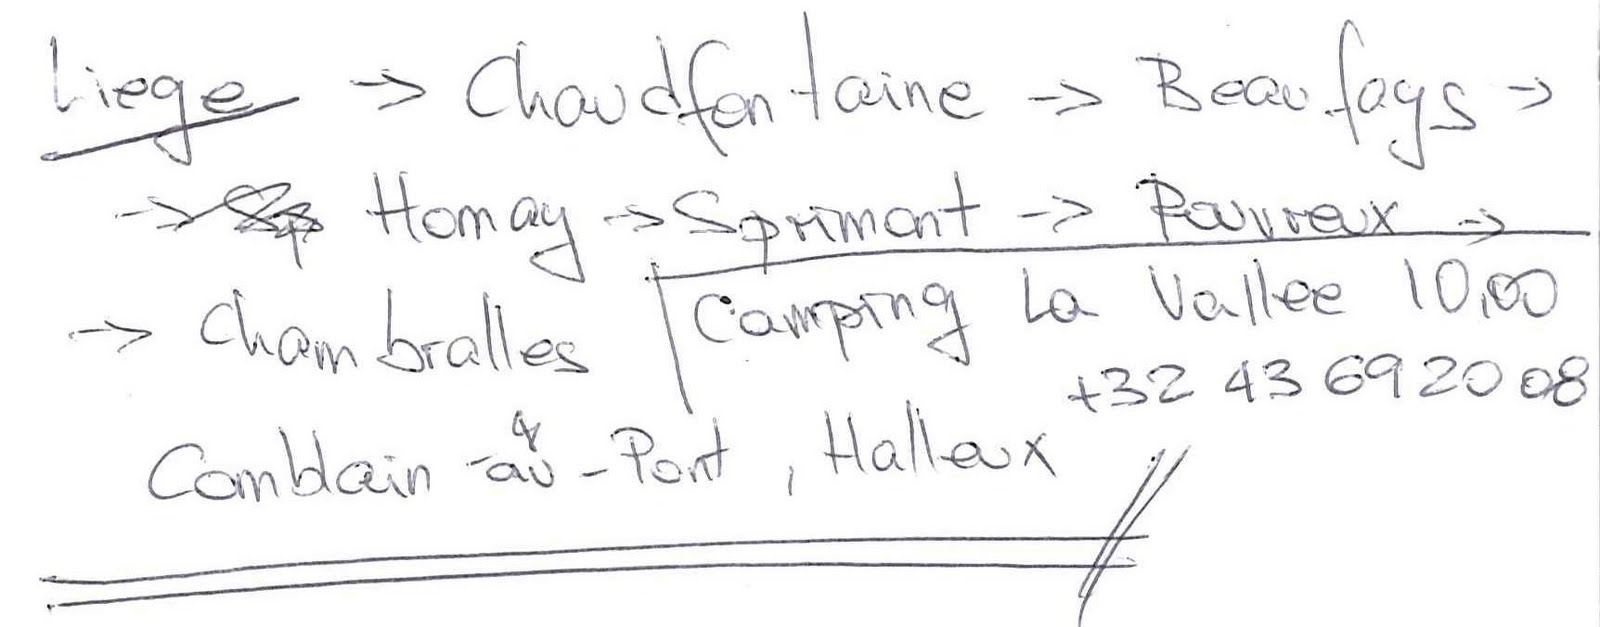 Liege -> Chaudfontaine -> Beaufays ->
-> Homay -> Sprimont -> Pouvreux ->
-> Chambralles
Camping La Vallee 10,00
+32 43 69 20 08
Comblain-au-Pont, Halleux